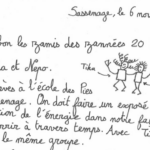 Sassenage, le 6 nov
bon les zamis des zannées 20
Tika
a et Nepo.
èves à l'école des Pies
enage. On doit faire un exposé
tion de l'énergie dans notre fa
rrir à travers temps. Avec Ti
le même groupe.